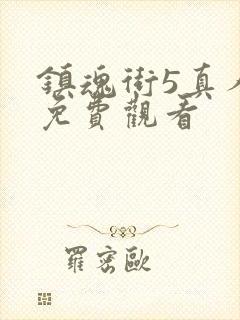 鎮魂街5真人
免費觀看
羅密歐